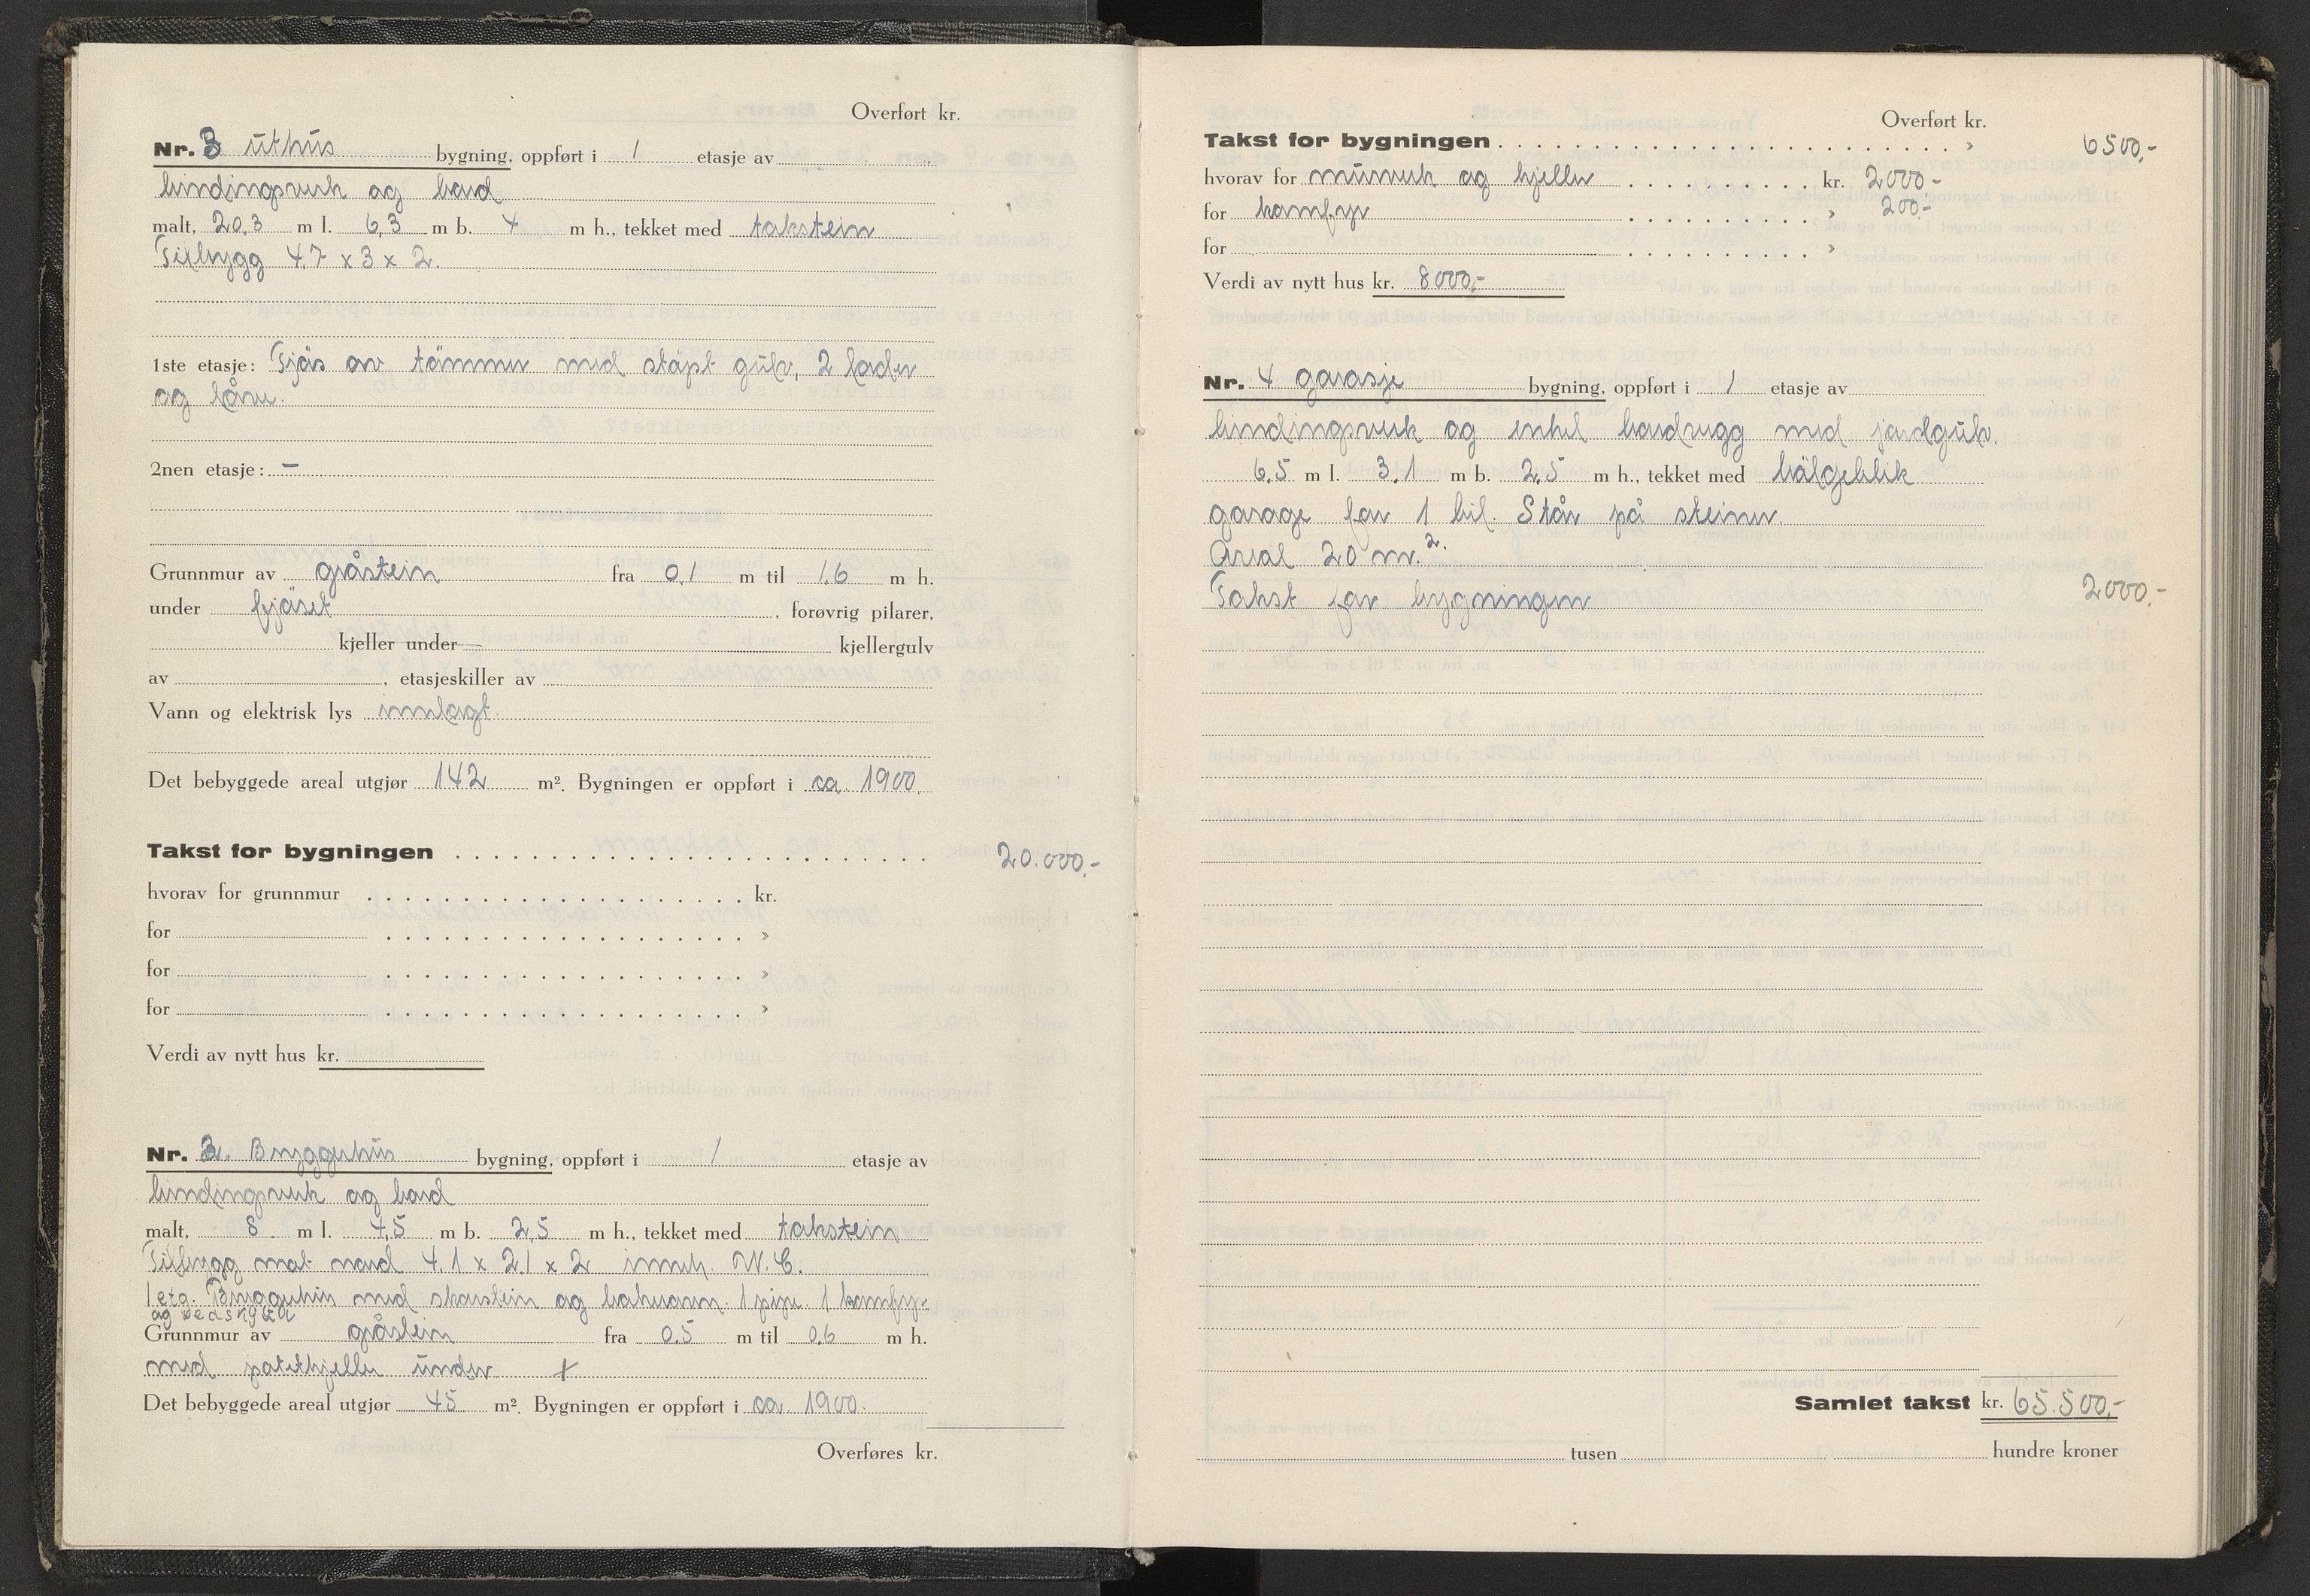 Overført kr.
Nr. 3 uthus bygning, oppført i 1 etasje av
bindingsverk og bord
malt, 20,3 m l. 6,3 m b. 4 m h., tekket med takstein
Tilbygg 4,7 x 3 x 2.
1ste etasje: Fjös av tömmer med stöpt gulv, 2 lader
og låve.
2nen etasje: —
Grunnmur av gråstein fra 0,1 m til 1,6 m h.
under fjöset, forøvrig pilarer,
kjeller under — kjellergulv
av , etasjeskiller av
Vann og elektrisk lys innlagt.
Det bebyggede areal utgjør 142 m². Bygningen er oppført i ca. 1900.
Takst for bygningen 20.000,-
hvorav for grunnmur kr.
for »
for »
for »
Verdi av nytt hus kr.
Nr. 2. Bryggerhus bygning, oppført i 1 etasje av
bindingsverk og bord
malt, 8 m l. 4,5 m b. 2,5 m h., tekket med takstein
Tilbygg mot nord 4,1 x 2,1 x 2 innh. W.C.
1 etg. Bryggerhus med skorstein og bakerovn. 1 pipe. 1 komfyr
og vedskjul
Grunnmur av gråstein fra 0,5 m til 0,6 m h.
med potetkjeller under x
Det bebyggede areal utgjør 45 m². Bygningen er oppført i ca. 1900.
Overføres kr.
Overført kr.
Takst for bygningen » 6500,-
hvorav for murverk og kjeller kr. 2000,-
for komfyr » 200,-
for »
Verdi av nytt hus kr. 8000,-
Nr. 4 garasje bygning, oppført i 1 etasje av
bindingsverk og enkel bordvegg med jordgulv.
6,5 m l. 3,1 m b. 2,5 m h., tekket med bölgeblik
garage for 1 bil. Står på steiner.
Areal 20 m.².
Takst for bygningen 2000,-
Samlet takst kr. 65.500,-
tusen hundre kroner